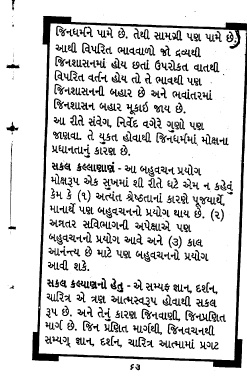 જિનધર્મને પામે છે. તેથી સામગ્રી પણ પામે છે.
આથી વિપરિત ભાવવાળો જો દ્રવ્યથી
જિનશાસનમાં હોય છતાં ઉપરોકત વાતથી
વિપરિત વર્તન હોય તો તે ભાવથી પણ
જિનશાસનની બહાર છે અને ભવાંતરમાં
જિનશાસન બહાર મૂકાઇ જાય છે.
આ રીતે સંવેગ, નિર્વેદ વગેરે ગુણો પણ
જાણવા. તે યુકત હોવાથી જિનધર્મમાં મોક્ષના
પ્રધાનતાનું કારણ છે.
સકલ કલ્લાણાણં - આ બહુવચન પ્રયોગ
મોક્ષરૂપ એક સુખમાં શી રીતે ઘટે એમ ન કહેવું
કેમ કે (૧) અત્યંત શ્રેષ્ઠતાનાં કારણે પૂજ્યાર્થે
માનાર્થે પણ બહુવચનનો પ્રયોગ થાય છે. (૨)
અન્નતર સવિભાગની અપેક્ષાએ પણ
બહુવચનનો પ્રયોગ આવે અને (૩) કાલ
આનંન્ત્ય છે માટે પણ બહુવચનનો પ્રયોગ
આવી શકે.
સકલ કલ્યાણનો હેતુ - એ સમ્યક્ જ્ઞાન, દર્શન,
ચારિત્ર એ ત્રણ આત્મસ્વરૂપ હોવાથી સકલ
રૂપ છે. અને તેનું કારણ જિનવાણી, જિનપ્રણિત
માર્ગ છે. જિન પ્રણિત માર્ગથી, જિનવચનથી
સમ્યગ્ જ્ઞાન, દર્શન, ચારિત્ર આત્મામાં પ્રગટ
૬૭